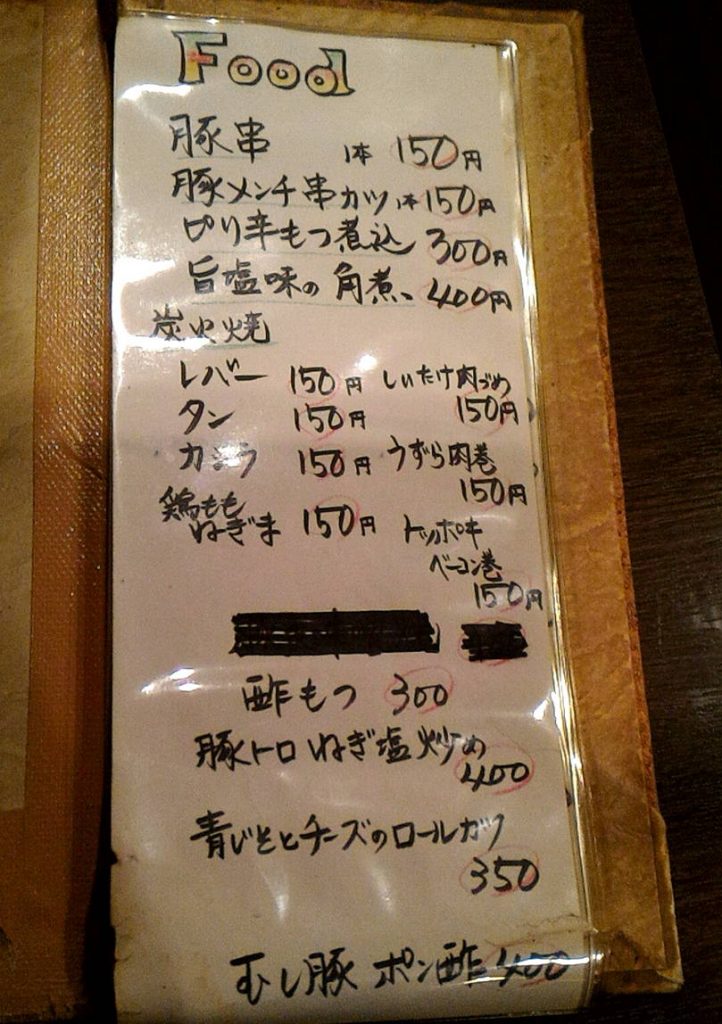 Food
豚串 1本 150円
豚メンチ串カツ 1本 150円
ぴり辛もつ煮込 300円
旨塩味の角煮 400円
炭火焼
レバー 150円
タン 150円
カシラ 150円
鶏もも
ねぎま 150円
しいたけ肉づめ
150円
うずら肉巻
150円
トッポキ
ベーコン巻
150円
酢もつ 300
豚トロねぎ塩炒め
400
青じそとチーズのロールカツ
350
むし豚 ポン酢 400